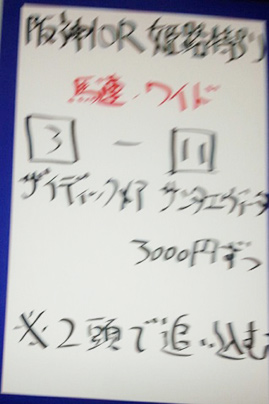 阪神10R 姫路特別
馬連・ワイド
3 — 11
ザイディックメア サンタエヴィータ
3000円ずつ
※2頭で追い込む